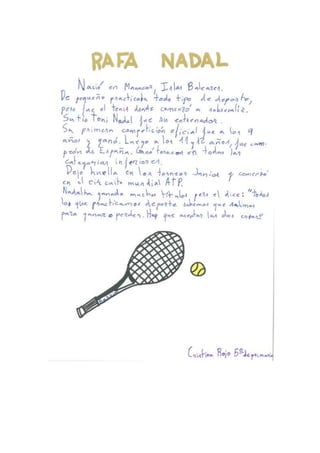 RAFA NADAL
Nació en Manacor, Islas Baleares.
De pequeño practicaba todo tipo de deporte,
pero fue el tenis donde comenzó a sobresalir.
Su tío Toni Nadal fue su entrenador.
Su primera competición oficial fue a los 9
años y ganó. Luego a los 11 y 12 años, fue cam-
peón de España. Ganó torneos en todas las
categorías inferiores.
Dejó huella en los torneos Junior y comenzó
en el circuito mundial ATP.
Nadal ha ganado muchos títulos pero el dice: "todos
los que practicamos deporte sabemos que salimos
para ganar o perder. Hay que aceptar las dos cosas"
Cristina Rojo 5º de primaria